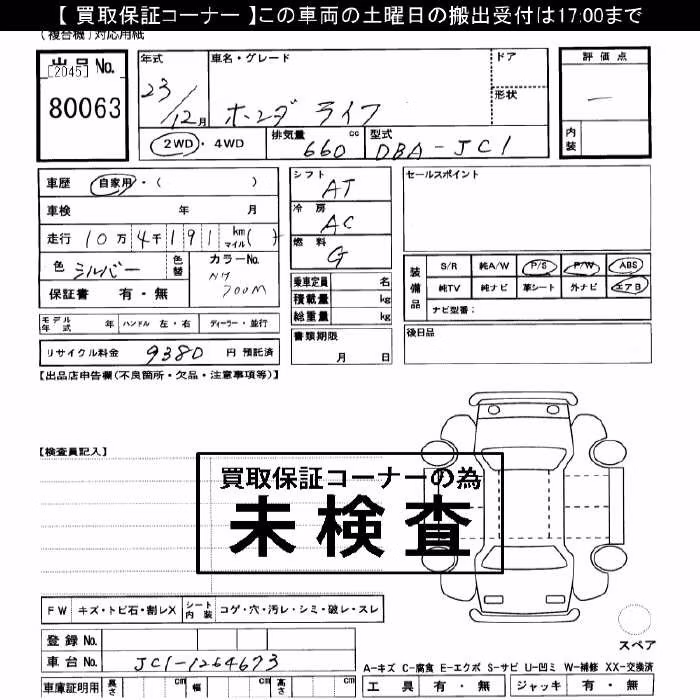 【 買取保証コーナー 】この車両の土曜日の搬出受付は17:00まで
(複合機)対応用紙
出品No.
[2045]
80063
年式 23/12月
車名・グレード ホンダ ライフ
ドア
形状
評価点
内装
2WD・4WD
排気量 660 cc
型式 DBA-JC1
車歴 自家用・( )
車検 年 月
走行 10万4千191 km マイル( )
色 シルバー 色替
カラーNo. NH700M
保証書 有・無
シフト AT
冷房 AC
燃料 G
乗車定員 名
積載量 kg
総重量 kg
書類期限 月 日
セールスポイント
装備品
S/R 純A/W P/S P/W ABS
純TV 純ナビ 革シート 外ナビ エアB
ナビ型番:
後日品
モデル年式 年 ハンドル 左・右 ディーラー・並行
リサイクル料金 9380 円 預託済
【出品店申告欄(不良箇所・欠品・注意事項等)】
【検査員記入】
買取保証コーナーの為
未検査
FW キズ・トビ石・割レX シート内装 コゲ・穴・汚レ・シミ・破レ・スレ
登録 No.
車台 No. JC1-1264673
車庫証明用 長さ cm 幅 cm 高さ cm
スペア
A-キズ C-腐食 E-エクボ S-サビ U-凹ミ W-補修 XX-交換済
工具 有・無 ジャッキ 有・無